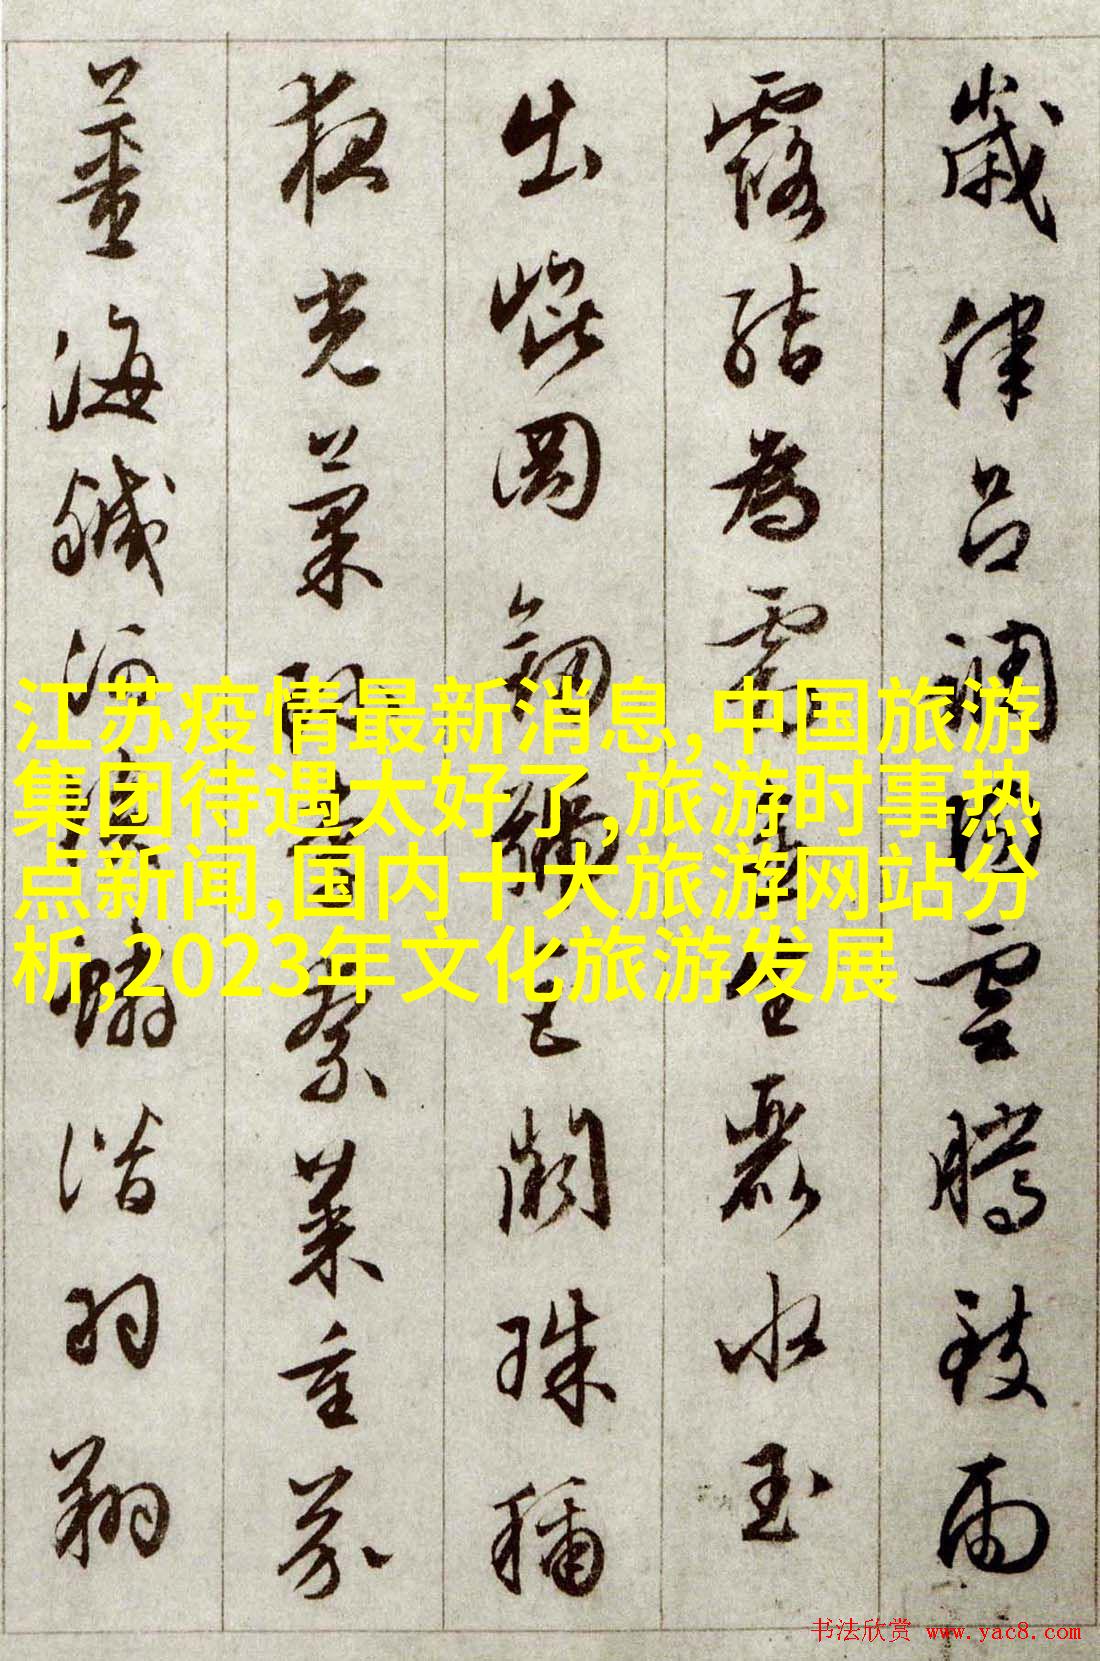 歲律呂調陽雲騰致雨
露結為霜金生麗水玉
出崑岡劒號巨闕珠稱
夜光菓珍李柰菜重芥
薑海鹹河淡鱗潛羽翔
江苏疫情最新消息,中国旅游
集团待遇太好了,旅游时事热
点新闻,国内十大旅游网站分
析,2023年文化旅游发展
书法欣赏 www.yac8.com